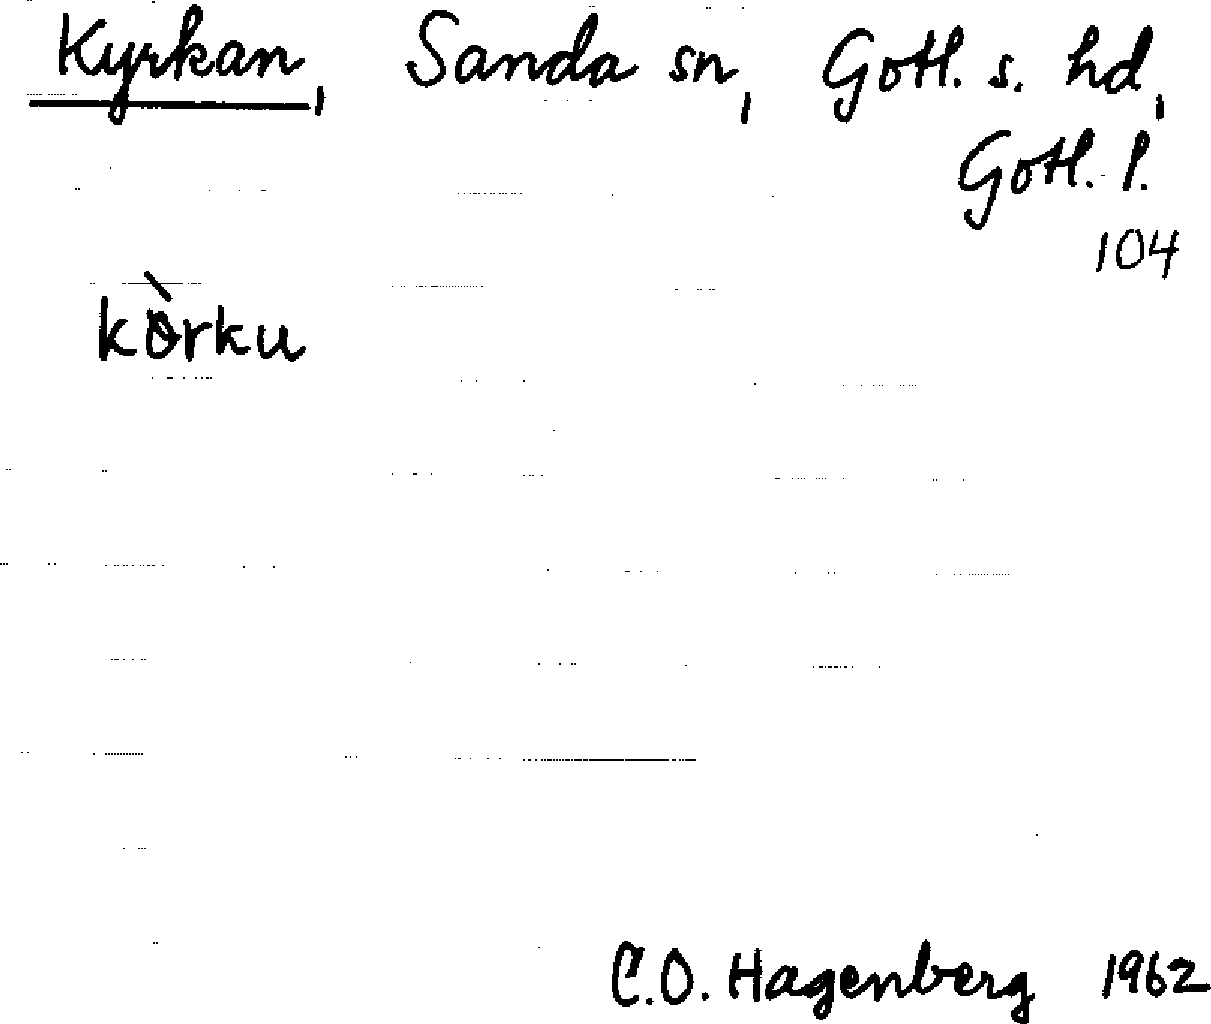 Kyrkan, Sanda sn, Gotl. s. hd,
Gotl. l.
104
kòrku
C.O. Hagenberg 1962